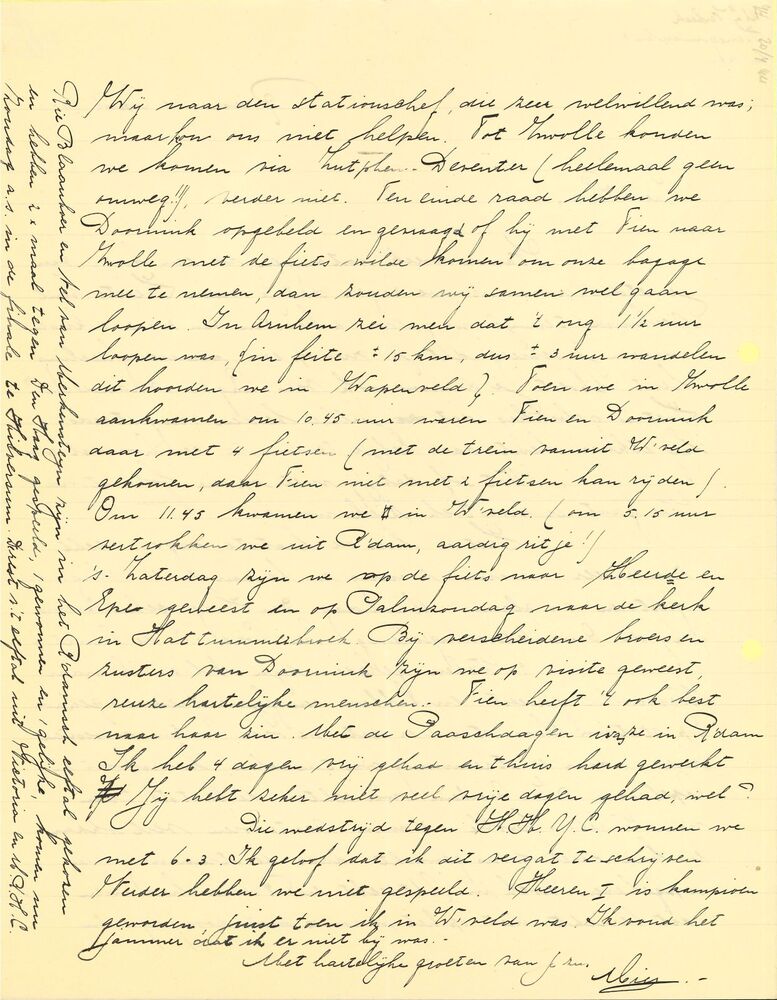 Wij naar den stationschef, die zeer welwillend was;
maar kon ons niet helpen. Tot Zwolle konden
we komen via Zutphen - Deventer (heelemaal geen
omweg!!), verder niet. Ten einde raad hebben we
Doornink opgebeld en gevraagd of hij met Fien naar
Zwolle met de fiets wilde komen om onze bagage
mee te nemen, dan zouden wij samen wel gaan
loopen. In Arnhem zei men dat 't ong 1½ uur
loopen was, (in feite ± 15 km, dus ± 3 uur wandelen
dit hoorden we in Wapenveld). Toen we in Zwolle
aankwamen om 10.45 uur waren Fien en Doornink
daar met 4 fietsen (met de trein vanuit W'veld
gekomen, daar Fien niet met 2 fietsen kan rijden).
Om 11.45 kwamen we in W'veld. (om 5.15 uur
vertrokken we uit R'dam, aardig ritje!)
's-Zaterdag zijn we op de fiets naar Heerde en
Epe geweest en op Palmzondag naar de kerk
in Hattummerbroek. Bij verscheidene broers en
zusters van Doornink zijn we op visite geweest,
reuze hartelijke menschen. Fien heeft 't ook best
naar haar zin. Met de Paaschdagen was ze in R'dam
Ik heb 4 dagen vrij gehad en thuis hard gewerkt
Jij hebt zeker niet veel vrije dagen gehad, wel?
Die wedstrijd tegen H.H.Y.C. wonnen we
met 6-3. Ik geloof dat ik dit vergat te schrijven
Verder hebben we niet gespeeld. Heeren I is kampioen
geworden, juist toen ik in W'veld was. Ik vond het
jammer dat ik er niet bij was.-
Met hartelijke groeten van
Mies.-
en Nel van zijn in het R'damsch elftal gekozen
en hebben 2x maal tegen Den Haag gespeeld, 1 gewonnen en 1 gelijke, komen nu
Zondag a.s. in de finale te Hilversum. Derest v. 't elftal uit Victoria en